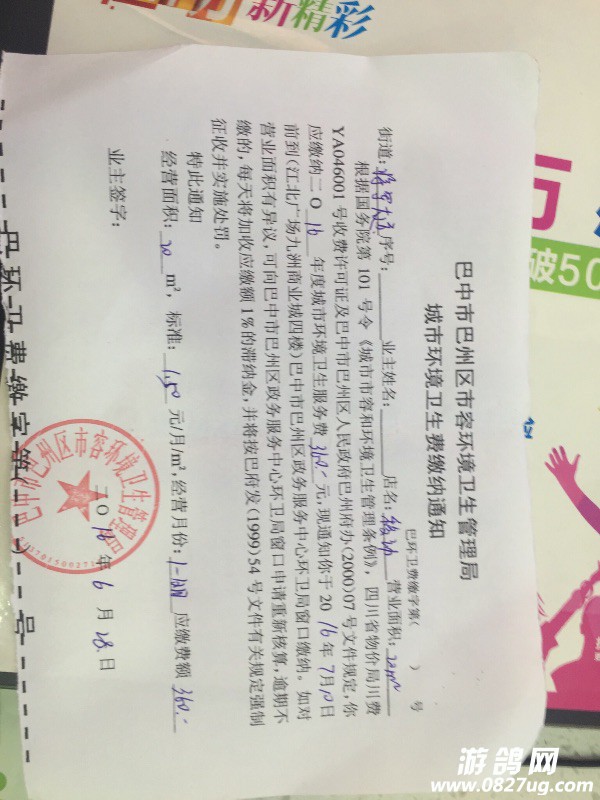 新精彩
破50
巴中市巴州区市容环境卫生管理局
城市环境卫生费缴纳通知
巴环卫费缴字第( )号
街道: 序号: 业主姓名: 店名: 营业面积: 20m²
根据国务院第 101 号令《城市市容和环境卫生管理条例》,四川省物价局川费
YA046001 号收费许可证及巴中市巴州区人民政府巴州府办(2000)07 号文件规定,你
应缴纳二O 16 年度城市环境卫生服务费 360.- 元,现通知你于20 16 年 7 月 10 日
前到(江北广场九洲商业城四楼)巴中市巴州区政务服务中心环卫局窗口缴纳。如对
营业面积有异议,可向巴中市巴州区政务服务中心环卫局窗口申请重新核算,逾期不
缴的,每天将加收应缴额 1%的滞纳金,并将按巴府发(1999)54 号文件有关规定强制
征收并实施处罚。
特此通知
经营面积: 20 m²,标准: 1.50 元/月/m²,经营月份: 1-12月 应缴费额 360.-
业主签字:
二O 16 年 6 月 28 日
巴中市巴州区市容环境卫生管理局
巴环卫费缴字第( )号
游鸽网
www.0827ug.com